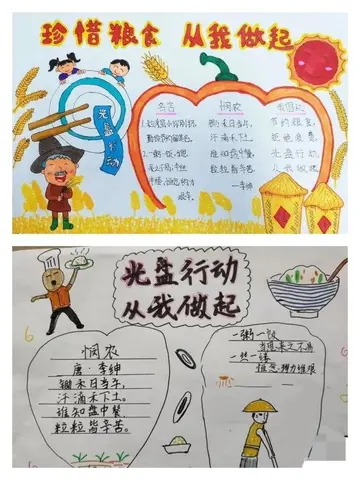 珍惜粮食 从我做起
光盘行动
名言
悯农
锄禾日当午,
汗滴禾下土。
谁知盘中餐,
粒粒皆辛苦。
—李绅
节约粮食,
拒绝浪费,
光盘行动
从我做起
光盘行动
从我做起
悯农
唐·李绅
锄禾日当午,
汗滴禾下土。
谁知盘中餐,
粒粒皆辛苦。
一粥一饭
当思来之不易
一丝一缕
恒念物力维艰